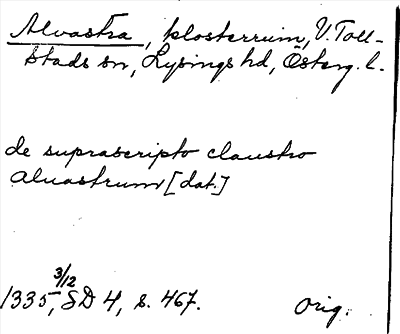 Alvastra, klosterruin, V. Toll-
stads sn, Lysings hd, Österg. l.
de suprascripto claustro
aluastrum [dat.]
1335 3/12, SD 4, s. 467. orig.